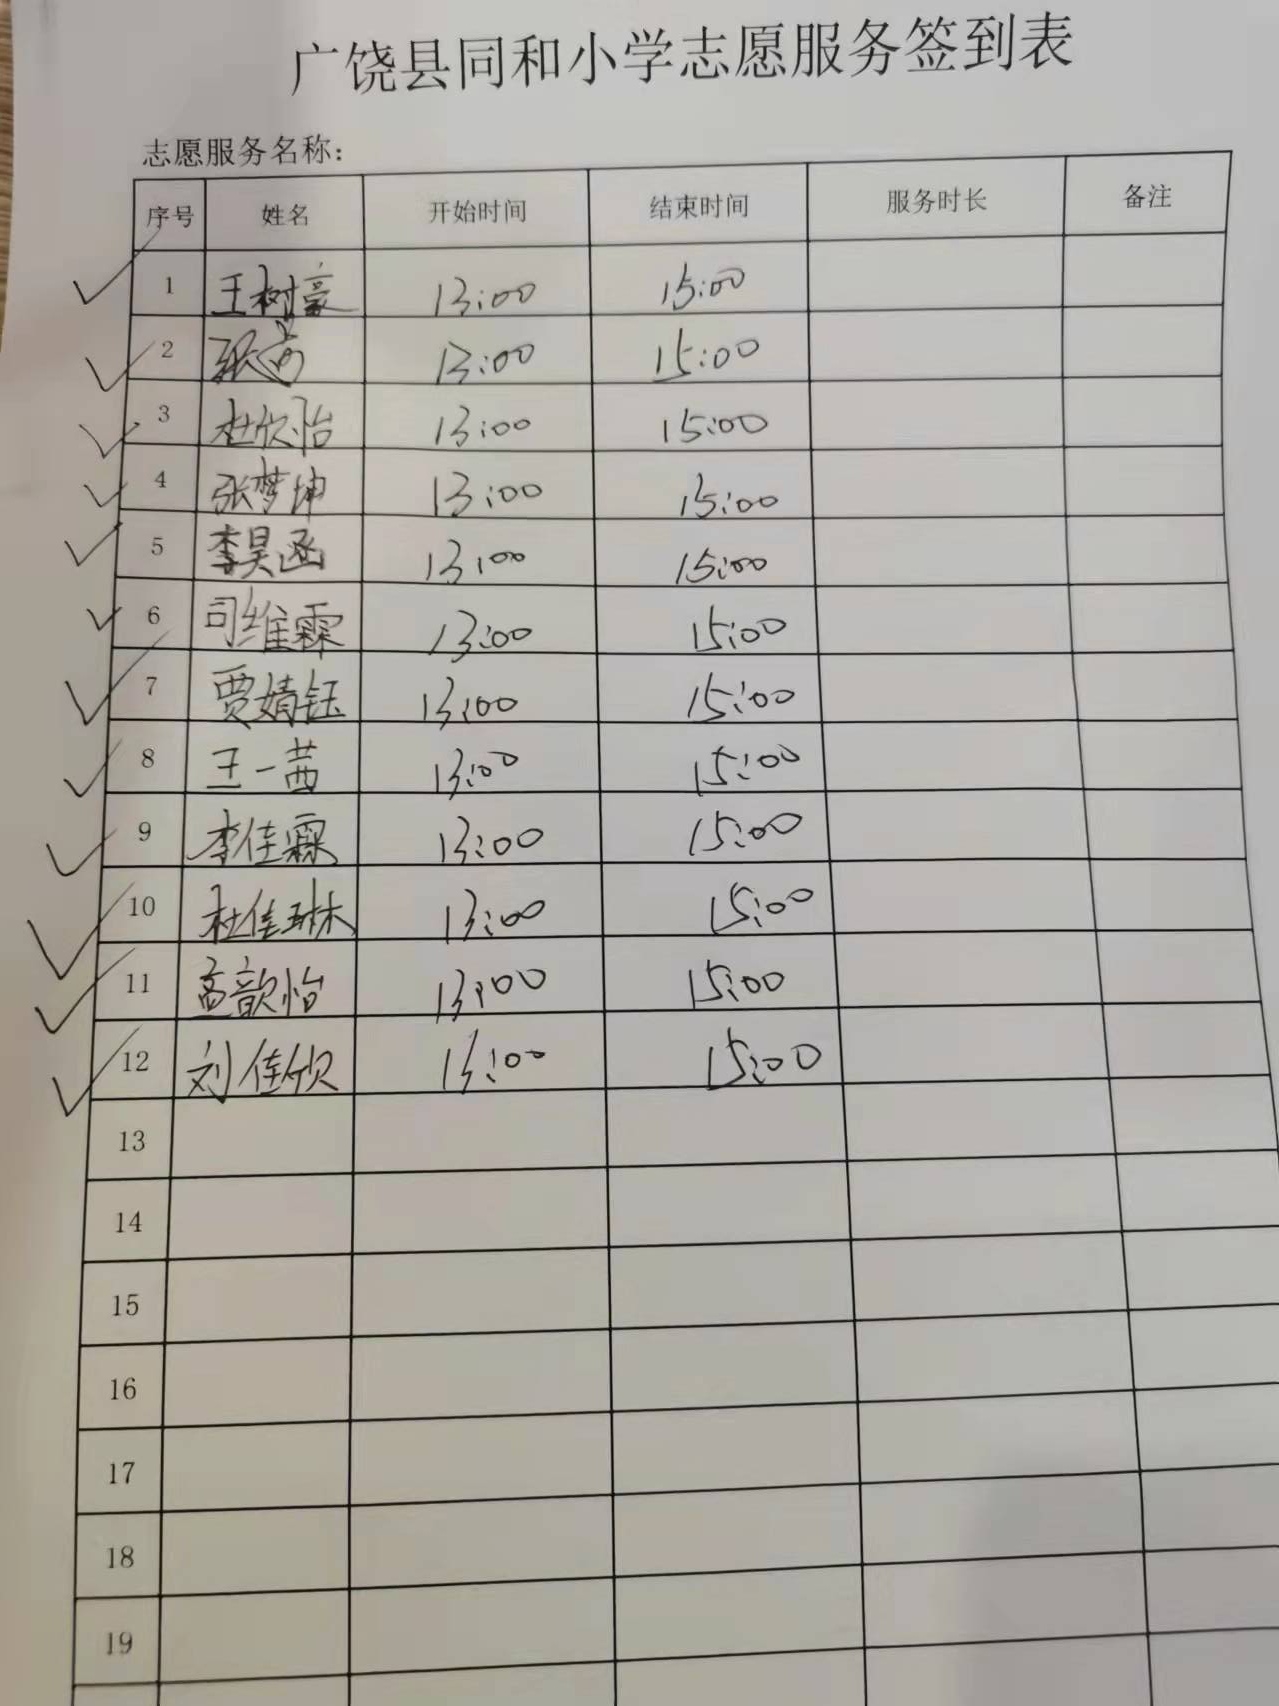 广饶县同和小学志愿服务签到表
志愿服务名称：
序号 姓名 开始时间 结束时间 服务时长 备注
1 王树豪 13:00 15:00
2 张 13:00 15:00
3 杜欣怡 13:00 15:00
4 张梦坤 13:00 15:00
5 李昊函 13:00 15:00
6 司维霖 13:00 15:00
7 贾婧钰 13:00 15:00
8 王一茜 13:00 15:00
9 李佳霖 13:00 15:00
10 杜佳琳 13:00 15:00
11 高歆怡 13:00 15:00
12 刘佳欣 13:00 15:00
13
14
15
16
17
18
19